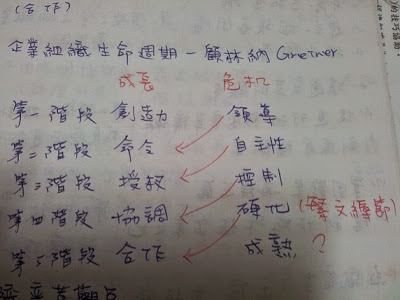 (合作)
企業組織生命週期－顧林納Greiner
成長 危机
第一階段 創造力 領導
第二階段 命令 自主性
第三階段 授权 控制
第四階段 協調 硬化 (繁文縟節)
第五階段 合作 成熟 ?